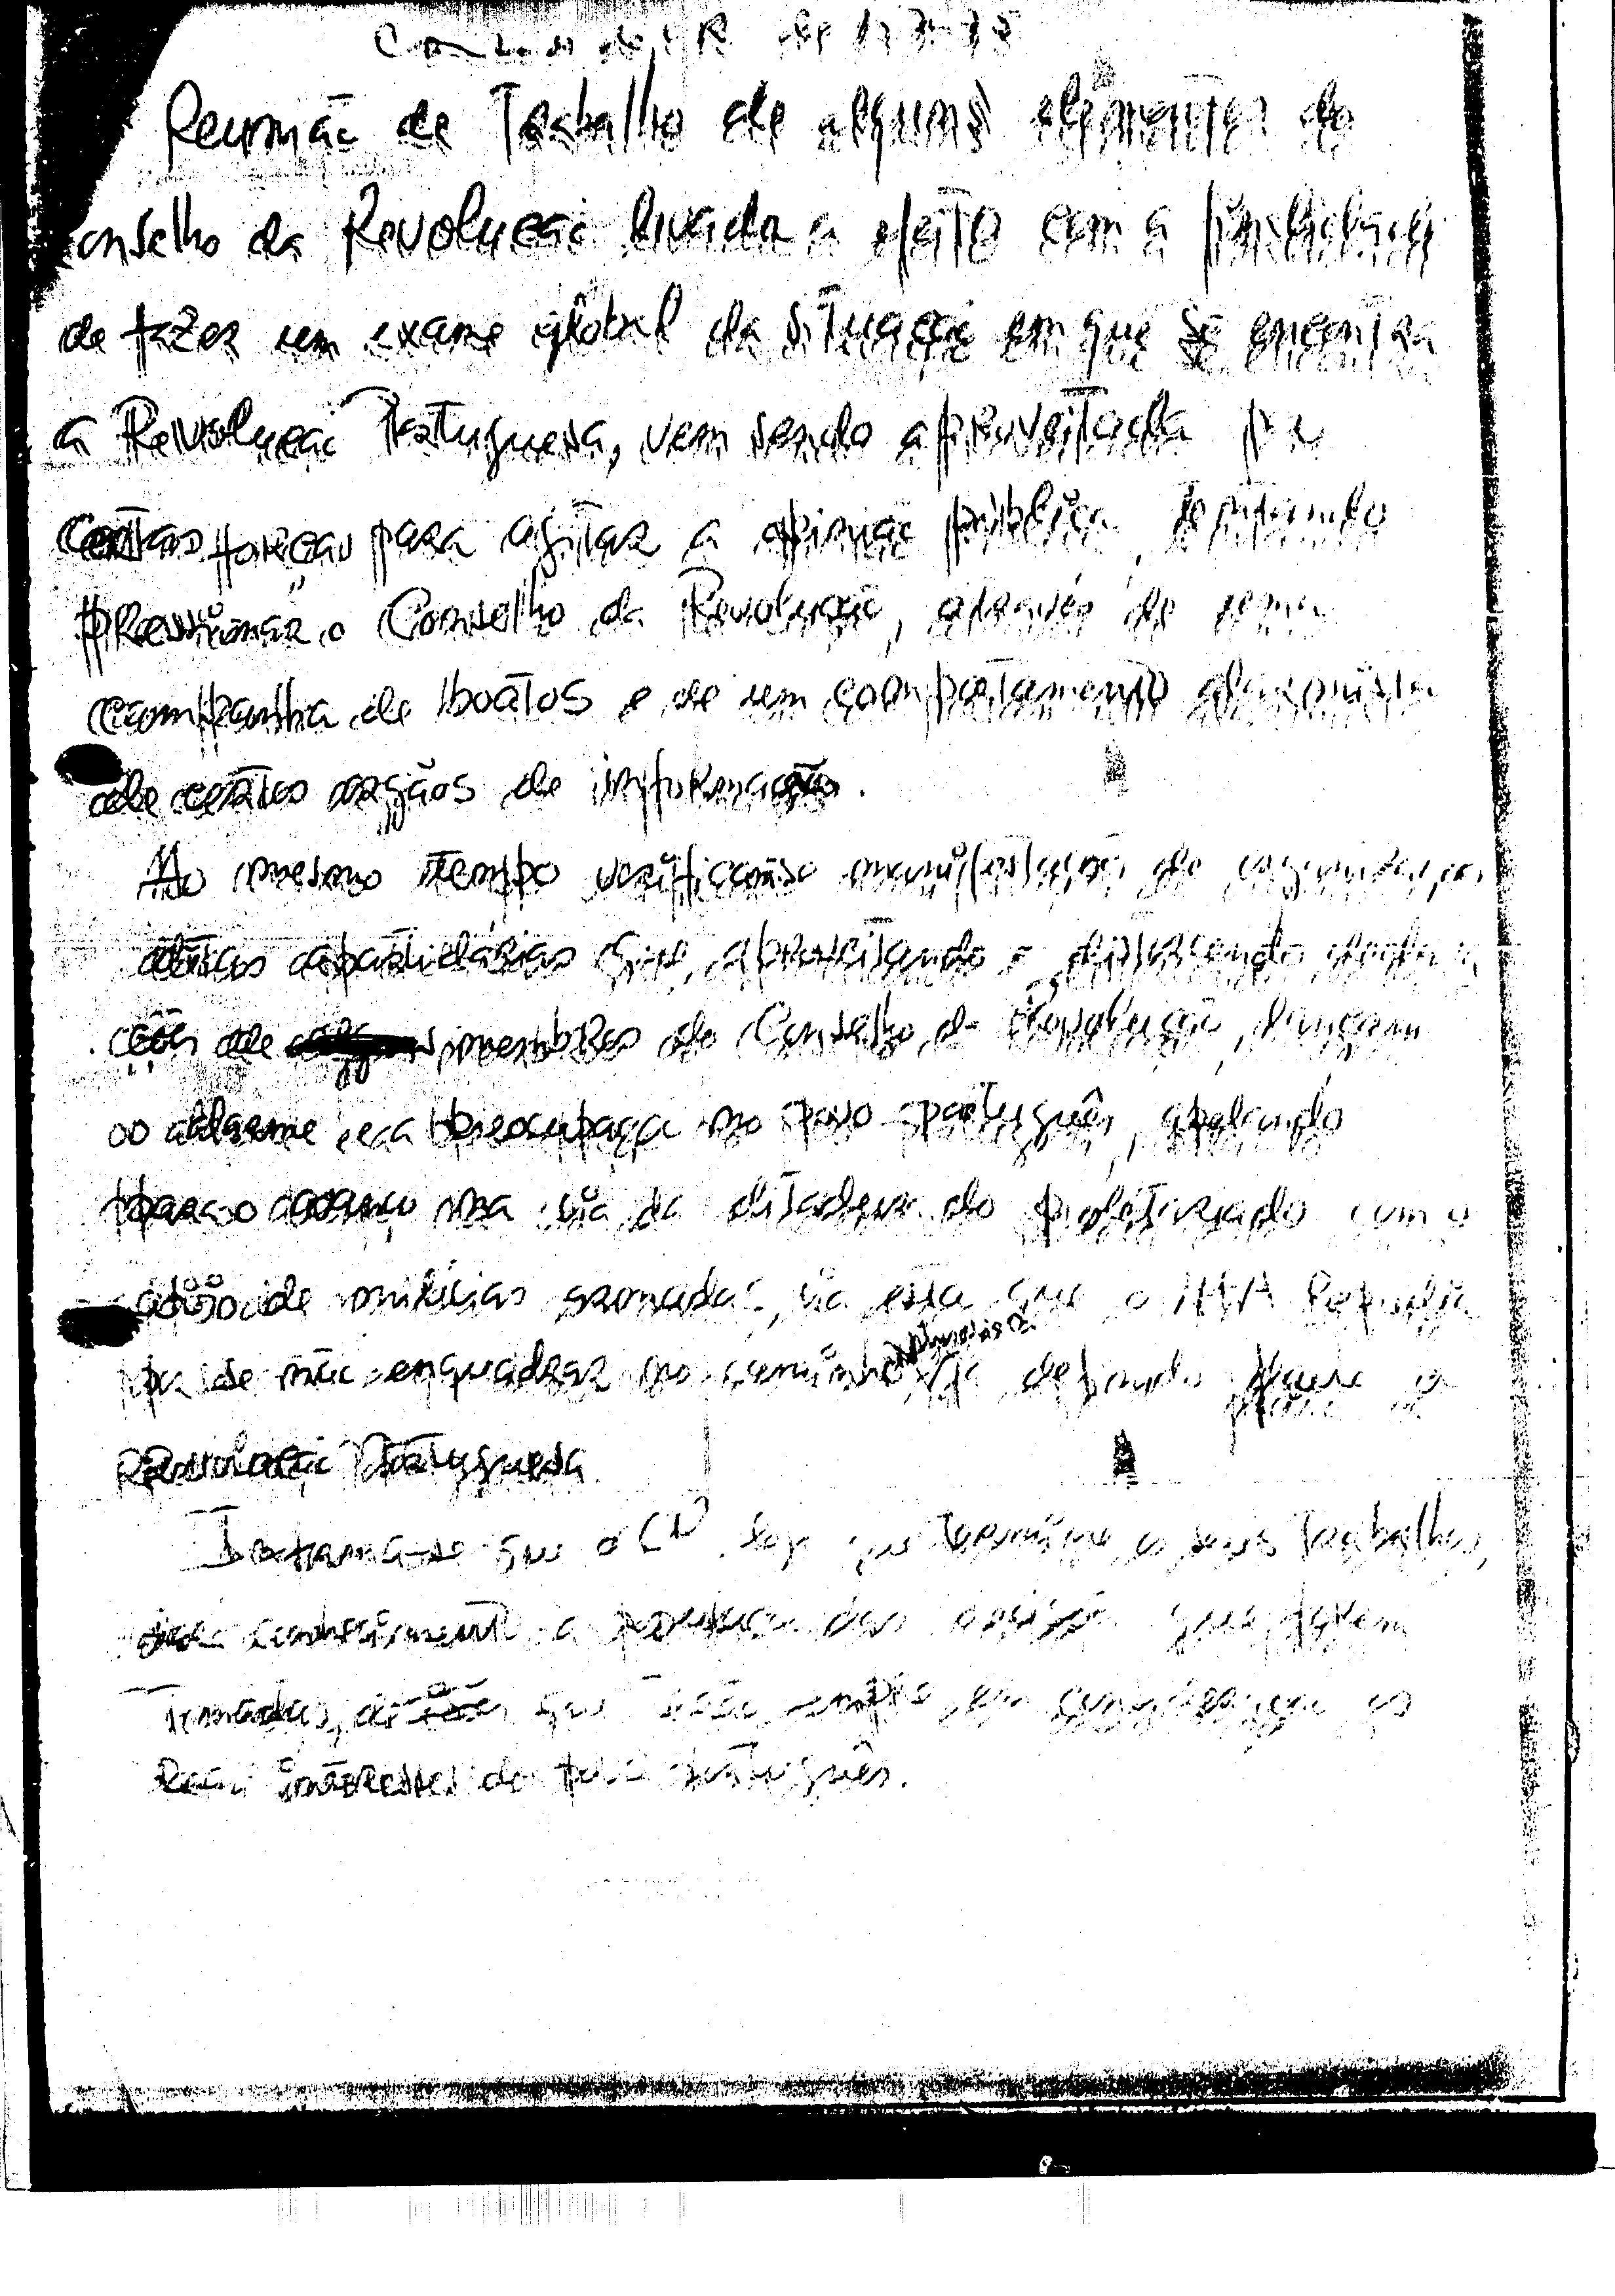 de
Reunião de Trabalho de alguns elementos do
onselho da Revolução levada a efeito com a finalidade
de fazer um exame global da situação em que se encontra
a Revolução Portuguesa, vem sendo aproveitada por
certas forças para agitar a opinião pública, tentando
pressionar o Conselho da Revolução, através de uma
campanha de boatos e de um comportamento alarmista
de certos orgãos de informação.
Ao mesmo tempo verificam-se manifestações de organizações
ditas apartidárias que, aproveitando e distorcendo declara
ções de membros do Conselho da Revolução, lançam
o alarme e a preocupação no povo português, apelando
para o avanço na via da ditadura do proletariado com o
apoio de milícias armadas, via esta que o MFA repudia
por se não enquadrar no caminho já definido para a
Revolução Portuguesa.
Informa-se que o CR, logo que termine os seus trabalhos,
dará conhecimento a do que forem
tomadas, que terão sempre em consideração os
reais interesses do povo português.